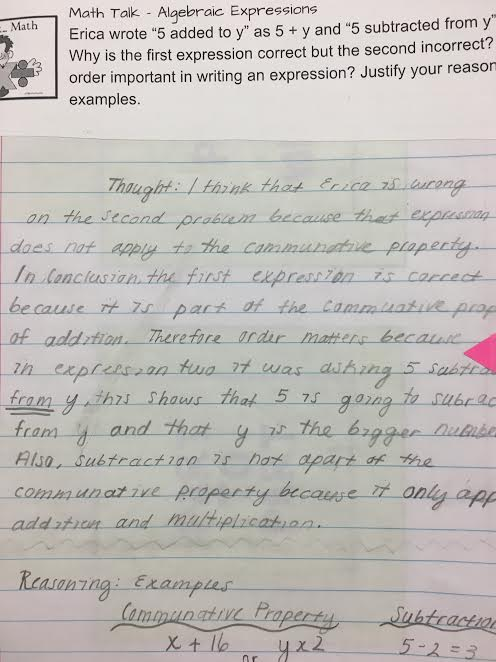 Math
Math Talk - Algebraic Expressions
Erica wrote “5 added to y” as 5 + y and “5 subtracted from y”
Why is the first expression correct but the second incorrect?
order important in writing an expression? Justify your reason
examples.
Thought: I think that Erica is wrong
on the second problem because that expression
does not apply to the communative property.
In Conclusion, the first expression is correct
because it is part of the commuative prop
of addition. Therefore order matters because
in expression two it was asking 5 subtra
from y, this shows that 5 is going to subrac
from y and that y is the bigger number
Also, subtraction is not apart of the
communative property because it only app
addition and multiplication.
Reasoning: Examples
Communative Property Subtraction
x + 16 y x 2 5 - 2 = 3
or